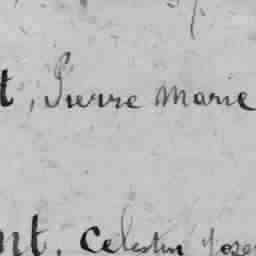 t, Pierre Marie
nt, Celestin Jose